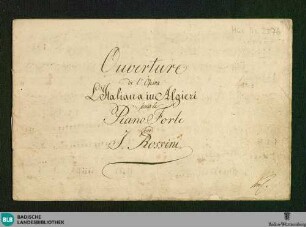 Ouverture
de l'Opera
L'Italiana in Algieri
pour le
Piano Forte
par
J. Rossini
BLB BADISCHE
LANDESBIBLIOTHEK
Baden-Württemberg